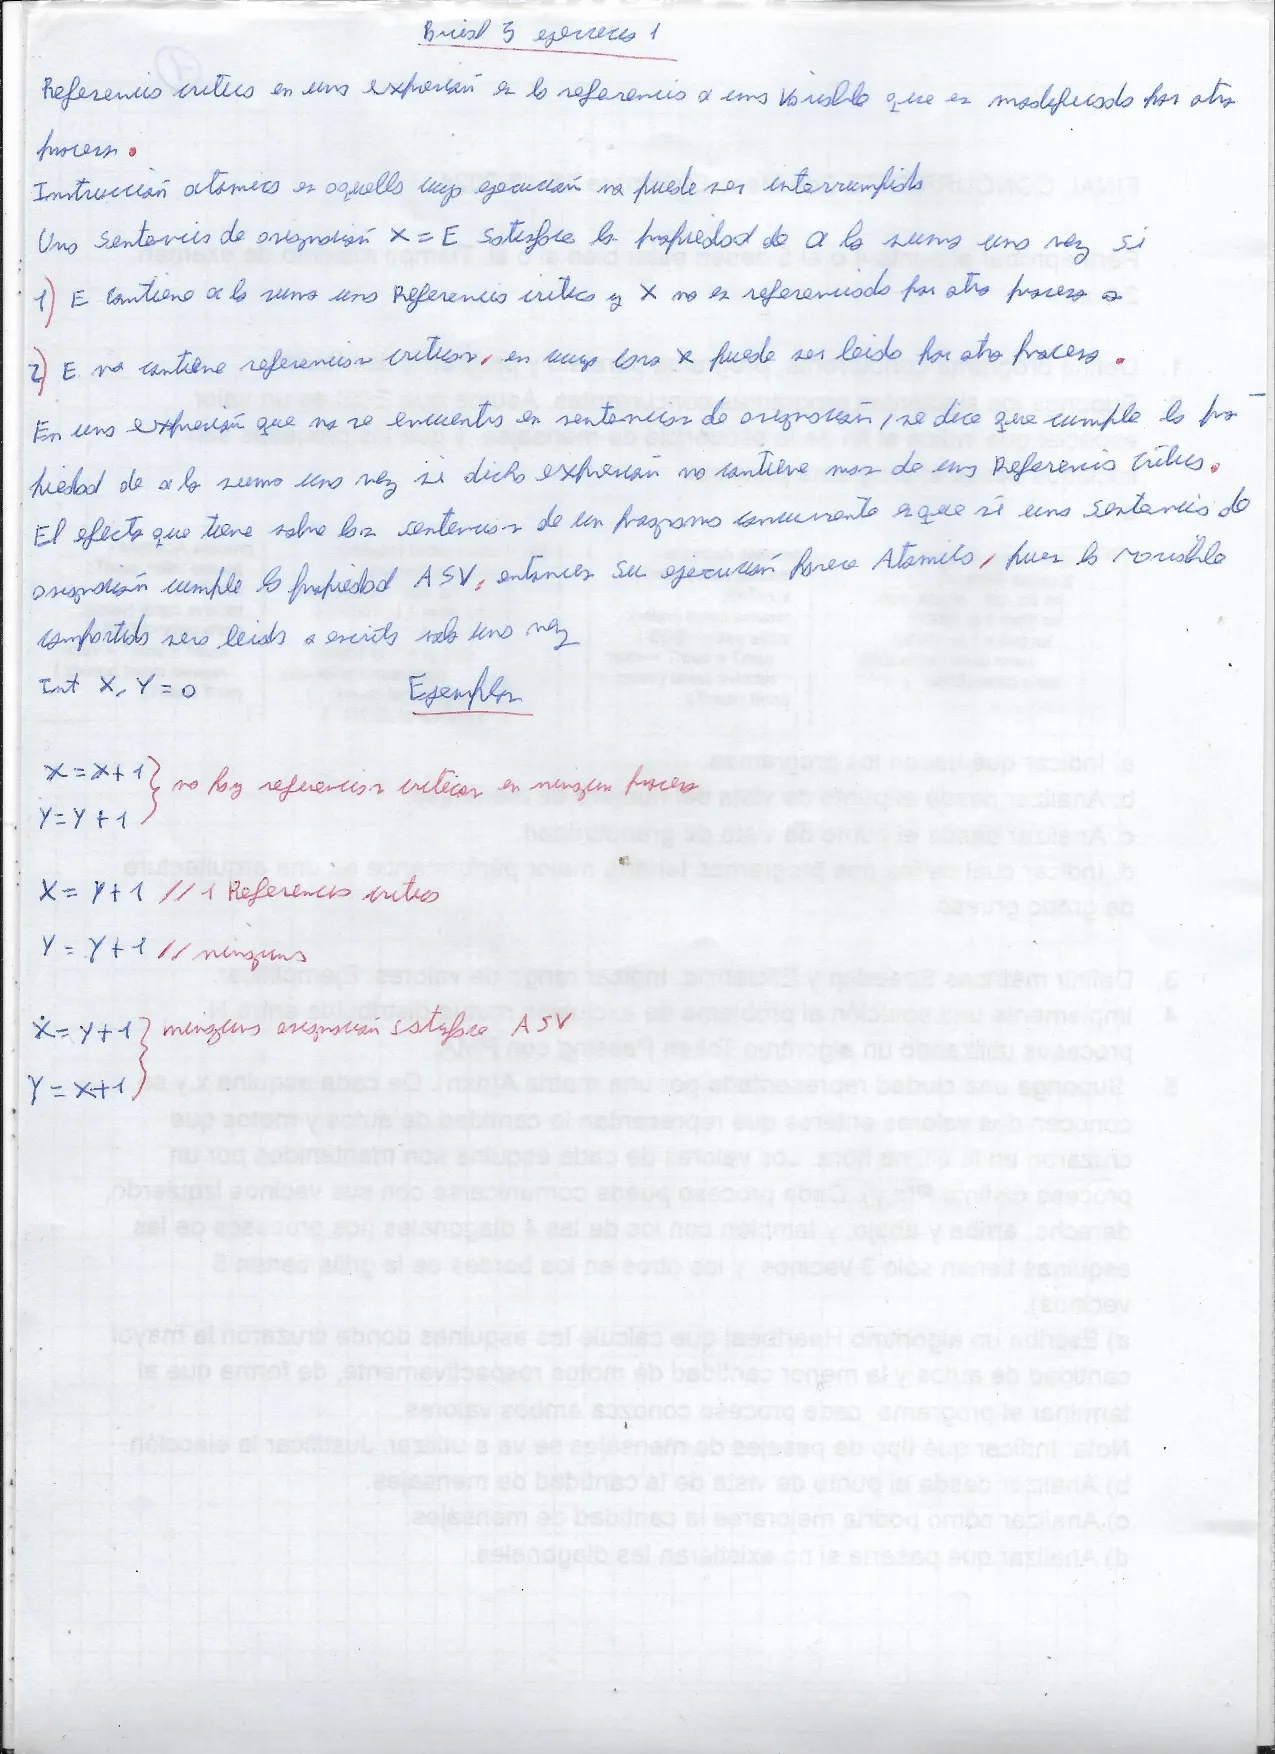 ejercicio 1
Referencia critica en una expresión es la referencia a una Variable que es modificada por otro
proceso.
Instrucción atomica es aquella cuya ejecución no puede ser interrumpida
Una sentencia de asignación X = E satisface la propiedad de a lo sumo una vez si
1) E contiene a lo sumo una Referencia critica y X no es referenciada por otro proceso o
2) E no contiene referencias criticas, en cuyo caso x puede ser leida por otro proceso.
En una expresión que no se encuentra en sentencias de asignación, se dice que cumple la pro-
piedad de a lo sumo una vez si dicha expresión no contiene mas de una Referencia Critica.
El efecto que tiene sobre las sentencias de un programa concurrente es que si una sentencia de
asignación cumple la propiedad ASV, entonces su ejecución parece Atomica, pues la variable
compartida sera leida o escrita solo una vez
Int X, Y = 0 Ejemplos
X = X + 1 } no hay referencias criticas en ningun proceso
Y = Y + 1
X = Y + 1 // 1 Referencia critica
Y = Y + 1 // ninguna
X = Y + 1 } ninguna asignación satisface ASV
Y = X + 1